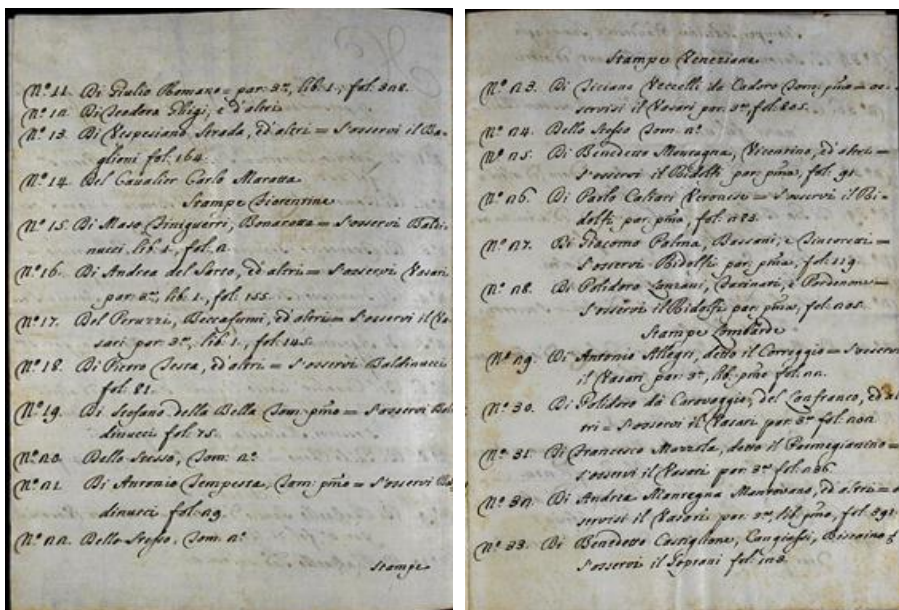 Nº 11. Di Giulio Romano = par. 3ª, lib. 1., fol. 328.
Nº 12. Di Teodoro Ghigi, e d'altri
Nº 13. Di Vespesiano Strada, ed'altri = S'osservi il Ba-
glioni fol. 164.
Nº 14. Del Cavalier Carlo Maratta
Stampe Fiorentine
Nº 15. Di Maso Finiguerri, Bonarota = S'osservi Baldi-
nucci, lib. 1., fol. 2.
Nº 16. Di Andrea del Sarto, ed'altri = S'osservi Vasari
par. 3ª, lib. 1., fol. 155.
Nº 17. Del Peruzzi, Beccafumi, ed'altri = S'osservi il Va-
sari par. 3ª, lib. 1., fol. 145.
Nº 18. Di Pietro Testa, ed'altri = S'osservi Baldinucci
fol. 81.
Nº 19. Di Stefano della Bella Tom: pmo = S'osservi Bal
dinucci fol. 75.
Nº 20. Dello Stesso, Tom: 2º
Nº 21. Di Antonio Tempesta, Tom: pmo = S'osservi Bal
dinucci fol. 29.
Nº 22. Dello Stesso, Tom: 2º
Stampe
Stampe Veneziane
Nº 23. Di Ticiano Vecelli da Cadoro Tom: pmo = os-
servisi il Vasari par. 3ª, fol. 805.
Nº 24. Dello Stesso Tom: 2º
Nº 25. Di Benedetto Montagna, Vicentino, ed'altri =
S'osservi il Ridolfi par. pma, fol. 91.
Nº 26. Di Paolo Caliari Veronese = S'osservi il Ri-
dolfi par. pma, fol. 283.
Nº 27. Di Giacomo Palma, Bassani, e Tintoretti =
S'osservi Ridolfi par. pma, fol. 119.
Nº 28. Di Polidoro Lanzani, e Pordenone =
S'osservi il Ridolfi par. pma, fol. 205.
Stampe Lombarde
Nº 29. Di Antonio Allegri, detto il Correggio = S'osservi
il Vasari par. 3ª, lib. pmo fol. 22.
Nº 30. Di Polidoro da Caravaggio, del Lanfranco, ed al
tri = S'osservi il Vasari par. 3ª fol. 202.
Nº 31. Di Francesco Mazzola, detto il Parmegianino =
S'osservi il Vasari par. 3ª fol. 236.
Nº 32. Di Andrea Mantegna Mantovano, ed'altri = o
servisi il Vasari par. 2ª, lib. pmo, fol. 391
Nº 33. Di Benedetto Castiglione, Cangiassi, Biscaino
S'osservi il Soprani fol. 123.